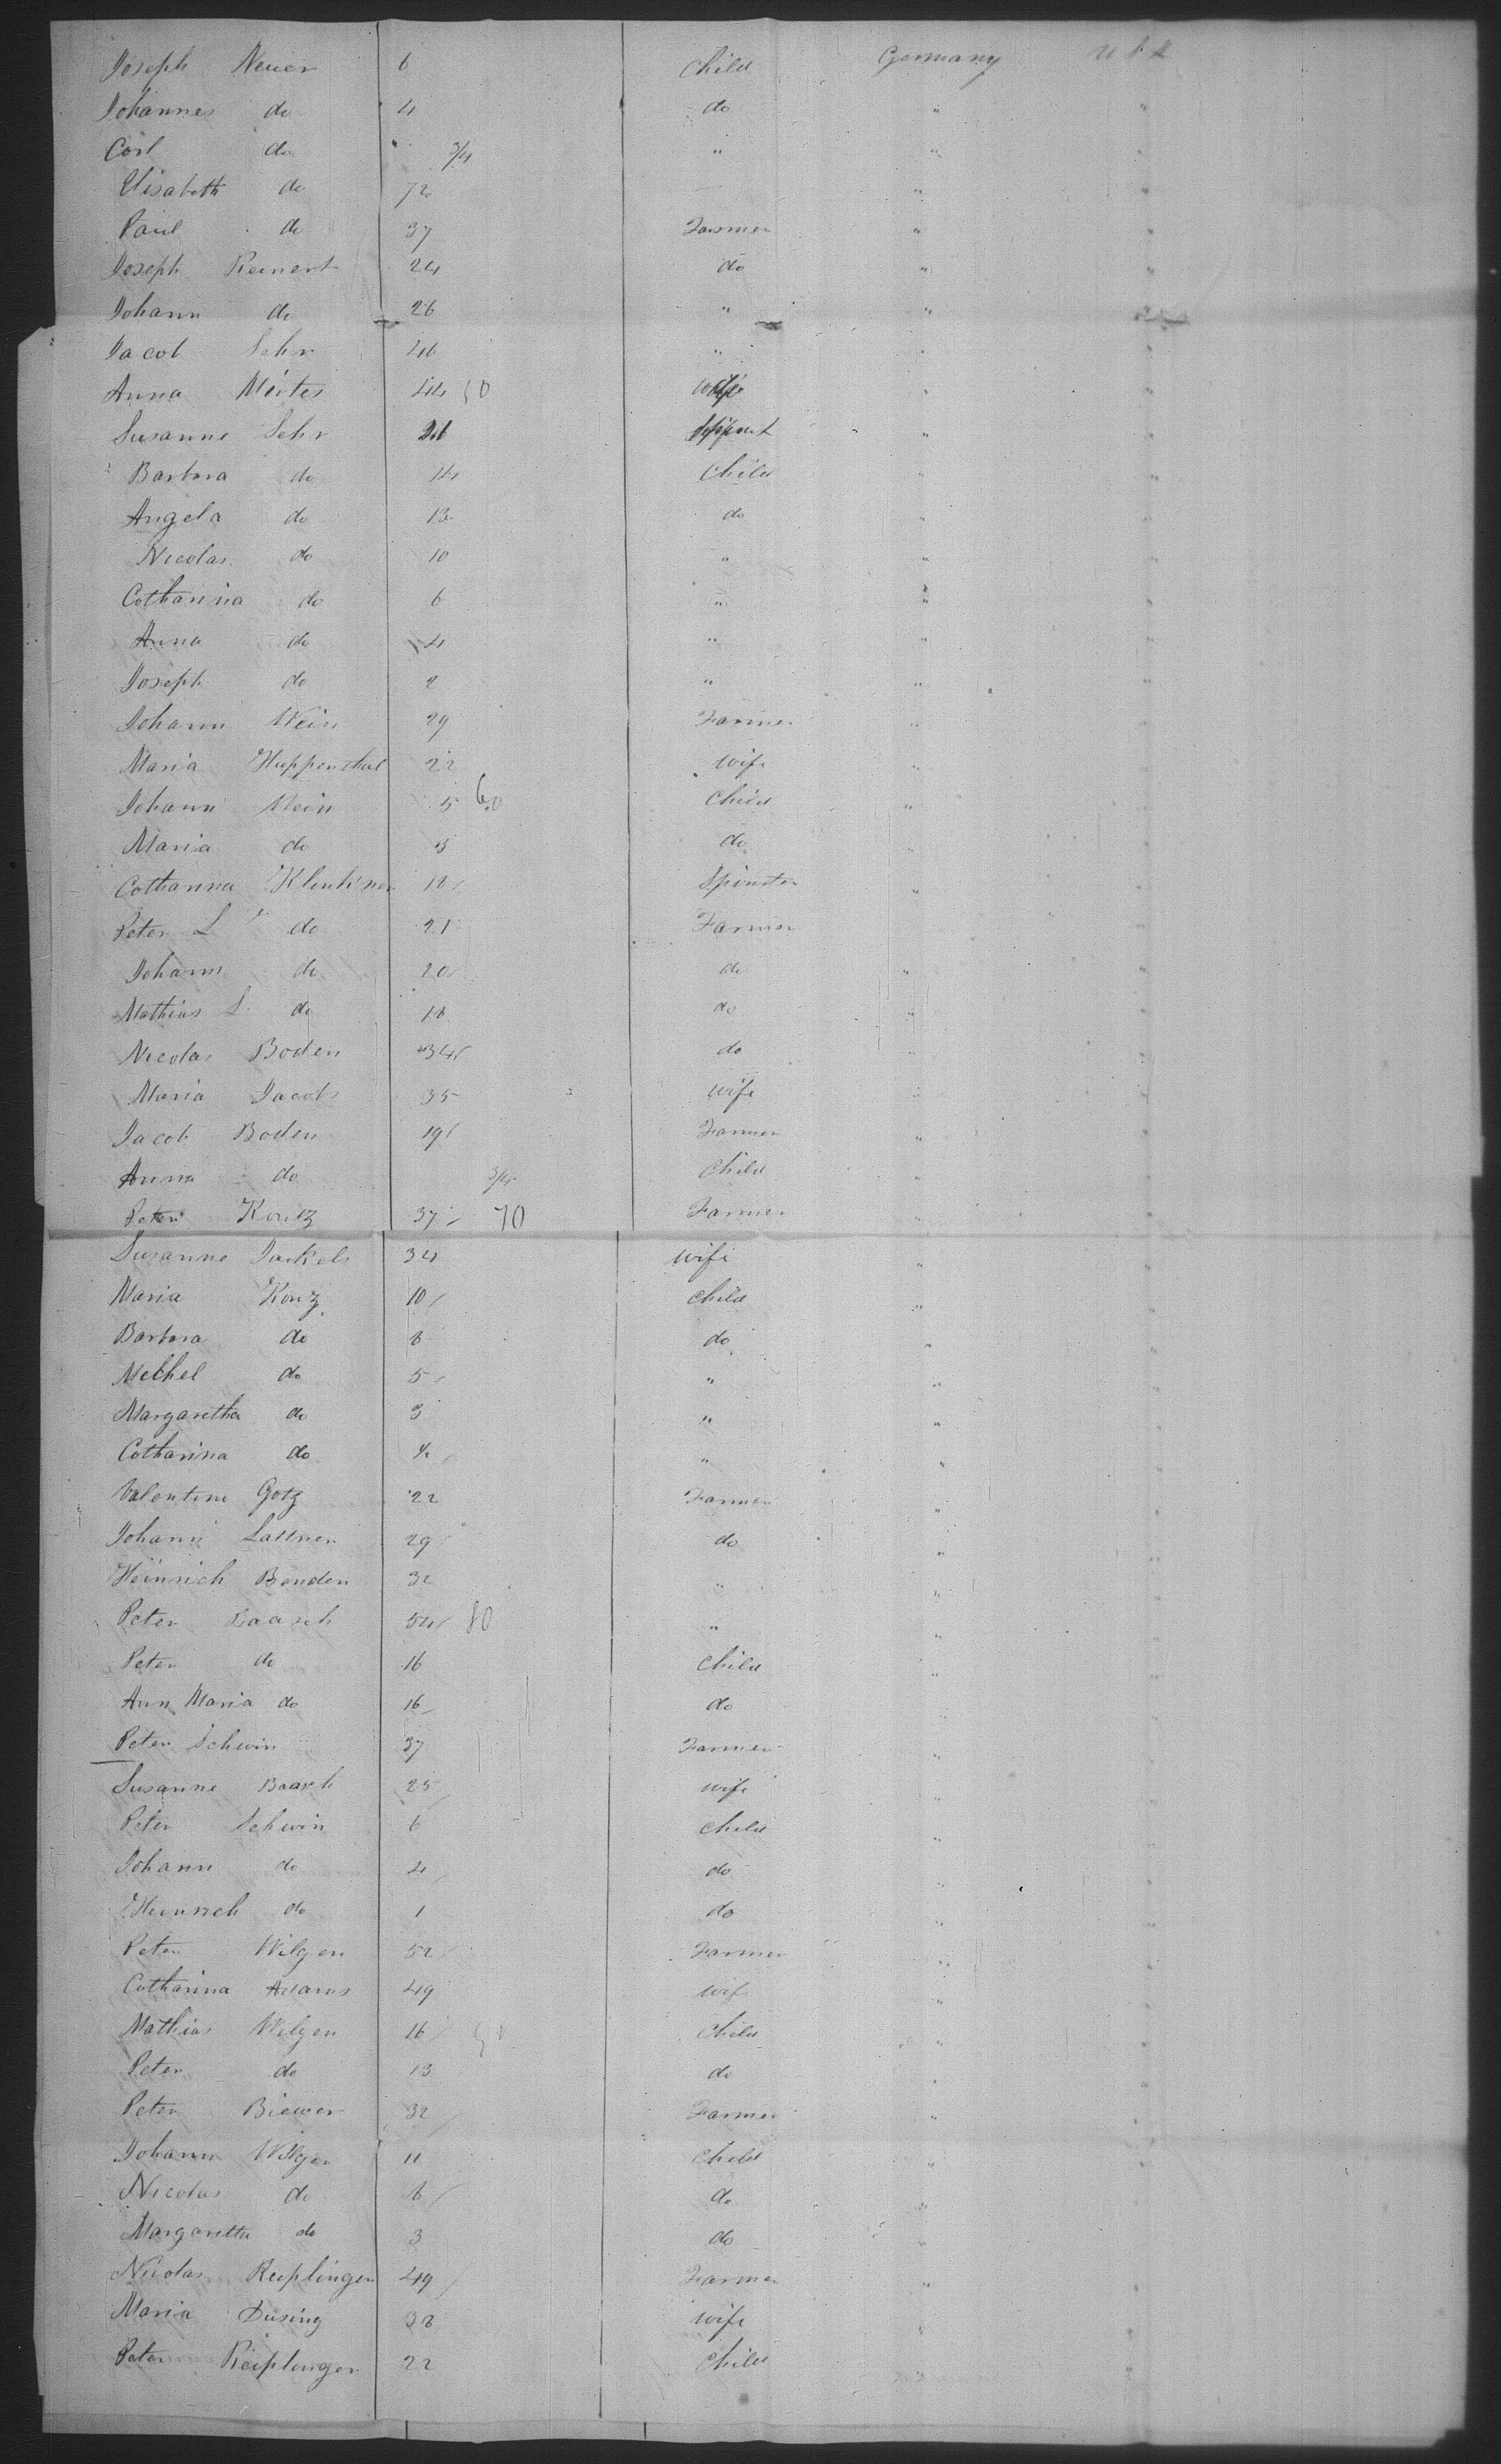 Joseph Neuer 6 Child Germany U S A
Johannes do 4 do " "
Carl do 3/4 " " "
Elisabeth do 72 " "
Paul do 37 Farmer " "
Joseph Reinert 24 do " "
Johann do 26 " " "
Jacob Sehr 46 " " "
Anna Mertes 44 50 wife " "
Susanne Sehr 21 " "
Barbara do 14 Child " "
Angela do 13 do " "
Nicolas do 10 " " "
Catharina do 6 " " "
Anna do 4 " " "
Joseph do 2 " " "
Johann Wein 29 Farmer " "
Maria Huppenthal 22 wife " "
Johann Wein 5 60 Child " "
Maria do 3 do " "
Catharina 18 Spinster " "
Peter L do 21 Farmer " "
Johann do 20 do " "
Mathias L do 18 do " "
Nicolas Boden 34 do " "
Maria Jacobs 35 wife " "
Jacob Boden 19 Farmer " "
Anna do 3/4 Child " "
Peter Konz 37 70 Farmer " "
Susanne Jackels 34 wife " "
Maria Konz 10 Child " "
Barbara do 8 do " "
Michel do 5 " " "
Margaretha do 3 " " "
Catharina do 1/2 " " "
Valentine Gotz 22 Farmer " "
Johann Lattner 29 do " "
Heinrich Benden 32 " " "
Peter Baasch 54 80 " " "
Peter do 16 Child " "
Ann Maria do 16 do " "
Peter Schwin 37 Farmer " "
Susanne Baasch 25 wife " "
Peter Schwin 6 Child " "
Johann do 4 do " "
Heinrich do 1 do " "
Peter Wilgen 52 Farmer " "
Catharina Adams 49 wife " "
Mathias Wilgen 16 90 Child " "
Peter do 13 do " "
Peter Biewer 32 Farmer " "
Johann Wilgen 11 Child " "
Nicolas do 8 do " "
Margaretha do 3 do " "
Nicolas Reiplingen 49 Farmer " "
Maria Düsing 38 wife " "
Peter Reiplingen 22 Child " "